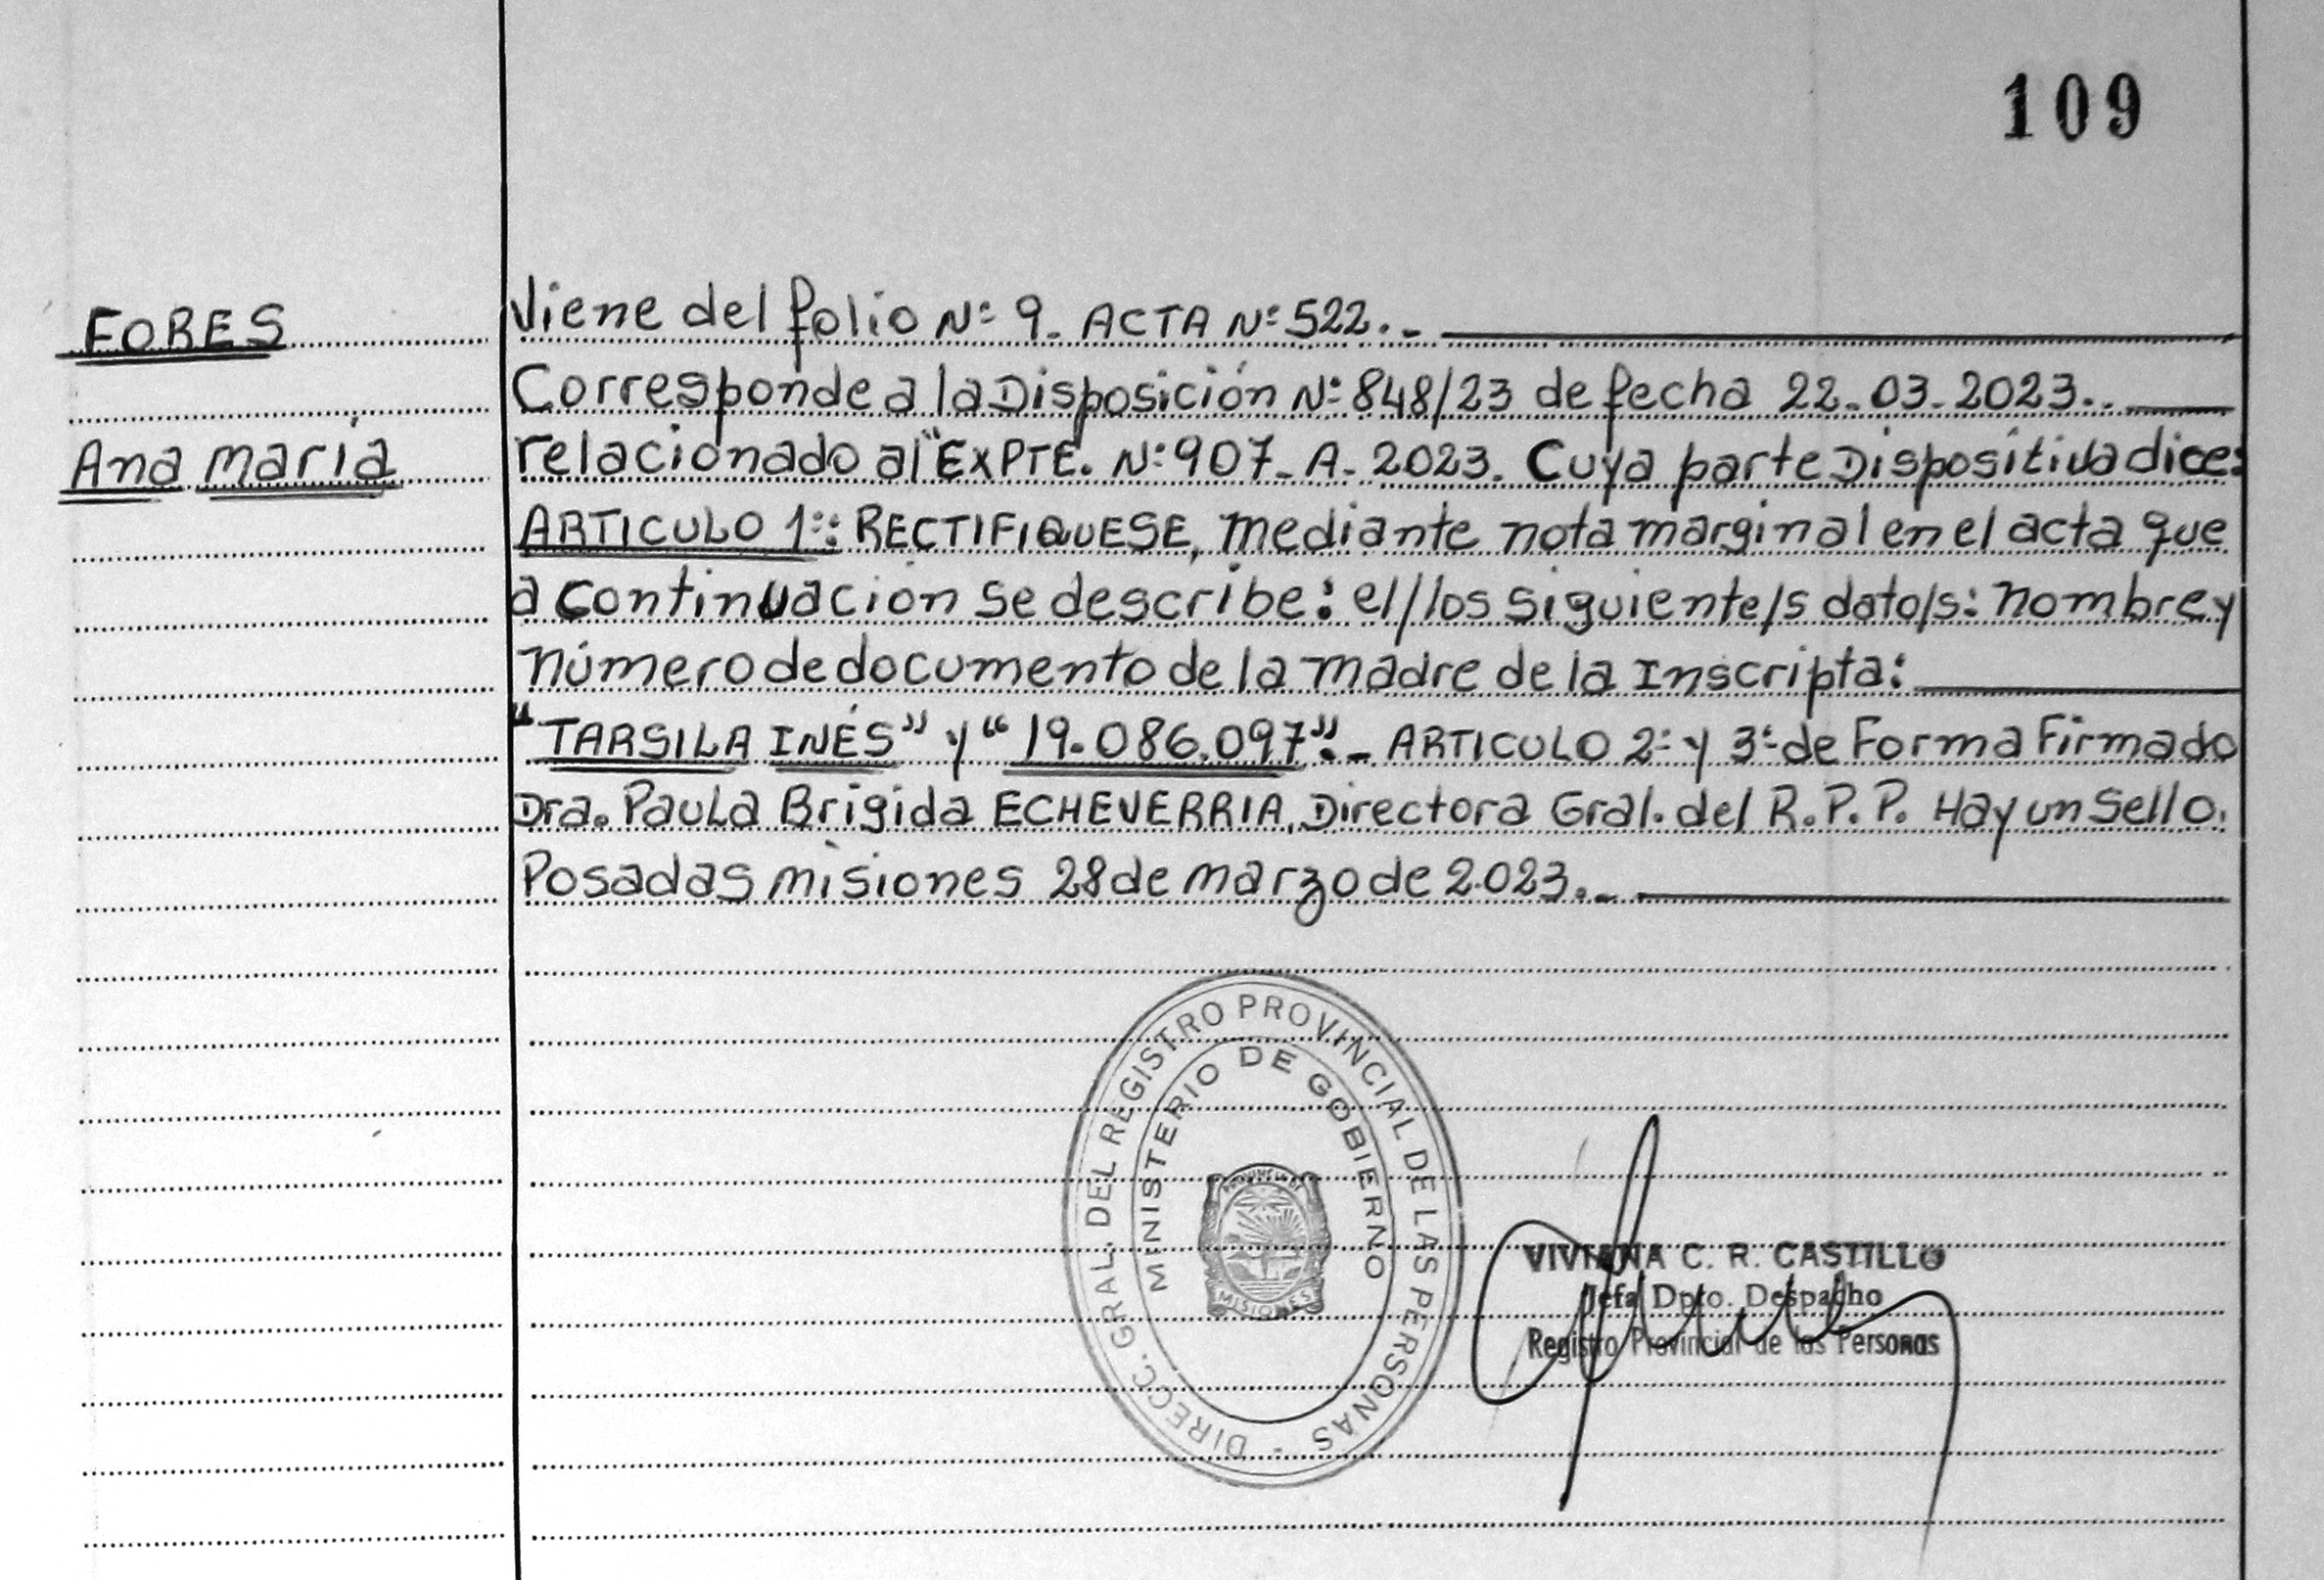 109
FORES
Ana maría
Viene del folio Nº 9. ACTA Nº 522._
Corresponde a la Disposición Nº 848/23 de fecha 22-03-2023._
relacionado al "EXPTE. Nº 907-A-2023. Cuya parte Dispositiva dice:
ARTICULO 1º: RECTIFIQUESE, mediante nota marginal en el acta que
a continuación se describe: el/los siguiente/s dato/s: nombre y
número de documento de la madre de la Inscripta:
"TARSILA INÉS" y "19.086.097"._ ARTICULO 2º y 3º de Forma Firmado
Dra. Paula Brigida ECHEVERRIA, Directora Gral. del R.P.P. Hay un Sello.
Posadas misiones 28 de marzo de 2.023._
DIRECC. GRAL. DEL REGISTRO PROVINCIAL DE LAS PERSONAS -
MINISTERIO DE GOBIERNO
PROVINCIA DE
MISIONES
VIVIANA C. R. CASTILLO
Jefa Dpto. Despacho
Registro Provincial de las Personas